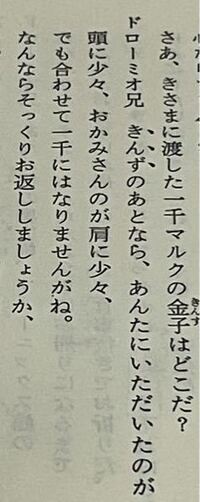 さあ、きさまに渡した一千マルクの金子はどこだ？
ドローミオ兄　きんずのあとなら、あんたにいただいたのが
頭に少々、おかみさんのが肩に少々、
でも合わせて一千にはなりませんがね。
なんならそっくりお返ししましょうか、